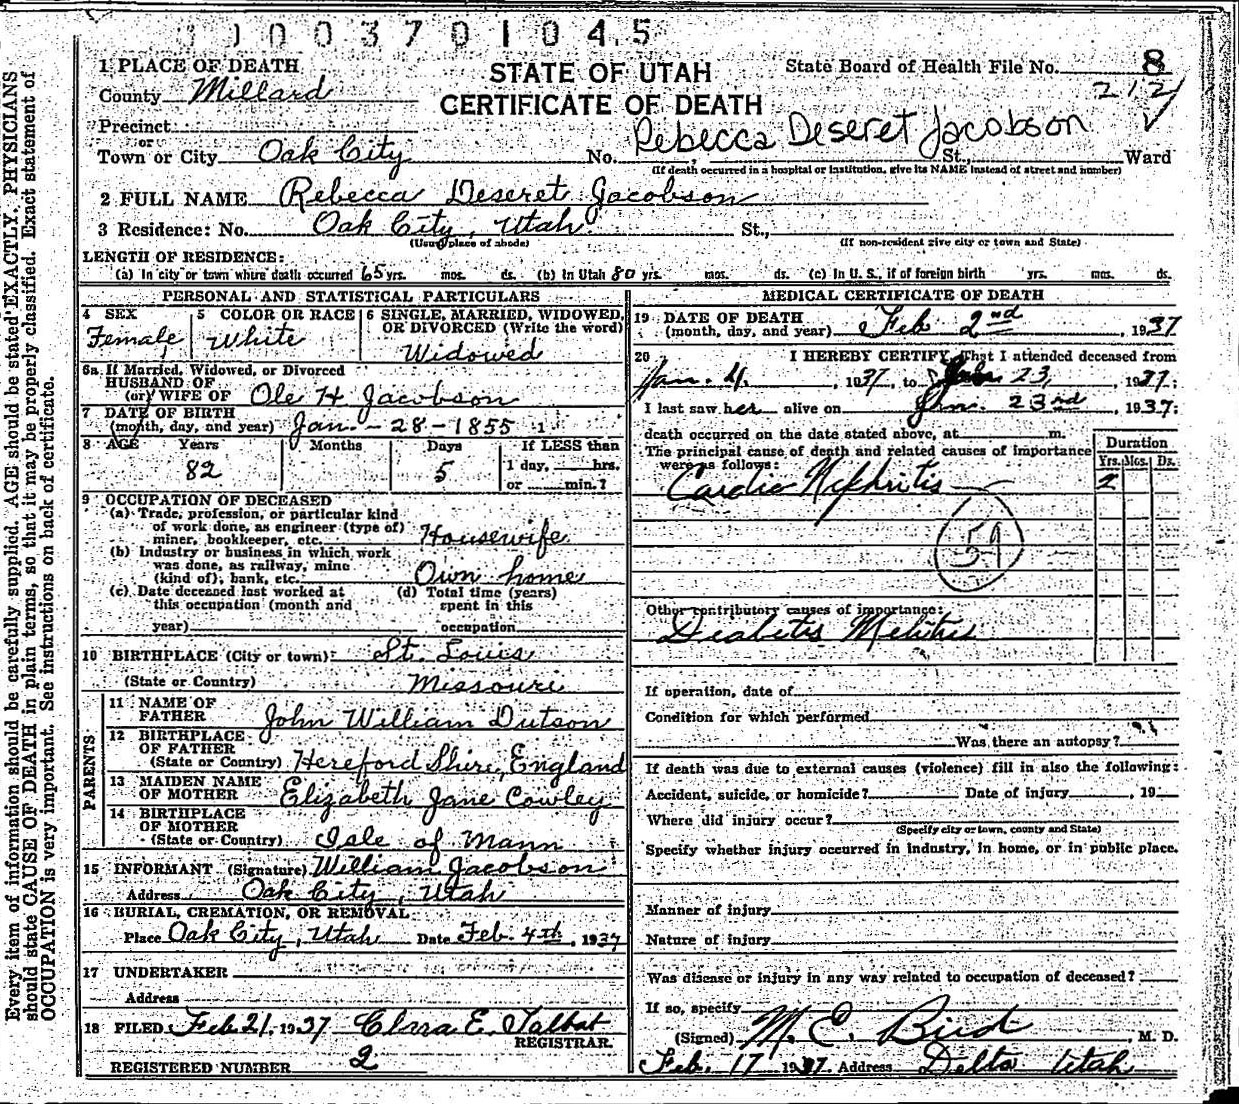 0003701045
1 PLACE OF DEATH
STATE OF UTAH
State Board of Health File No. 8
County Millard
CERTIFICATE OF DEATH
212
Precinct
Rebecca Deseret Jacobson
or
Town or City Oak City No. St., Ward
(If death occurred in a hospital or institution, give its NAME instead of street and number)
2 FULL NAME Rebecca Deseret Jacobson
3 Residence: No. Oak City, Utah. St.,
(Usual place of abode) (If non-resident give city or town and State)
LENGTH OF RESIDENCE:
(a) In city or town where death occurred 65 yrs. mos. ds. (b) In Utah 80 yrs. mos. ds. (c) In U. S., if of foreign birth yrs. mos. ds.
PERSONAL AND STATISTICAL PARTICULARS
4 SEX
Female
5 COLOR OR RACE
White
6 SINGLE, MARRIED, WIDOWED,
OR DIVORCED (Write the word)
Widowed
6a If Married, Widowed, or Divorced
HUSBAND OF
(or) WIFE OF Ole H Jacobson
7 DATE OF BIRTH
(month, day, and year) Jan - 28 - 1855
8 AGE Years Months Days If LESS than
82 5 1 day, hrs.
or min.?
9 OCCUPATION OF DECEASED
(a) Trade, profession, or particular kind
of work done, as engineer (type of)
miner, bookkeeper, etc. Housewife
(b) Industry or business in which work
was done, as railway, mine
(kind of), bank, etc. Own home
(c) Date deceased last worked at
this occupation (month and
year)
(d) Total time (years)
spent in this
occupation
10 BIRTHPLACE (City or town): St. Louis
(State or Country) Missouri
PARENTS
11 NAME OF
FATHER John William Dutson
12 BIRTHPLACE
OF FATHER
(State or Country) Hereford Shire, England
13 MAIDEN NAME
OF MOTHER Elizabeth Jane Cowley
14 BIRTHPLACE
OF MOTHER
(State or Country) Isle of Mann
15 INFORMANT (Signature) William Jacobson
Address Oak City, Utah
16 BURIAL, CREMATION, OR REMOVAL
Place Oak City, Utah Date Feb. 4th, 1937
17 UNDERTAKER
Address
18 FILED Feb 21, 1937 Clara E. Talbot
REGISTRAR.
REGISTERED NUMBER 2
MEDICAL CERTIFICATE OF DEATH
19 DATE OF DEATH
(month, day, and year) Feb 2nd, 1937
20 I HEREBY CERTIFY, That I attended deceased from
Jan. 4, 1937, to 23, 1937:
I last saw her alive on Jan. 23rd, 1937:
death occurred on the date stated above, at m.
The principal cause of death and related causes of importance
were as follows:
Duration
Yrs. Mos. Ds.
Cardio Nephritis 2
59
Other contributory causes of importance:
Diabetis Melitis
If operation, date of
Condition for which performed
Was there an autopsy?
If death was due to external causes (violence) fill in also the following:
Accident, suicide, or homicide? Date of injury, 19
Where did injury occur?
(Specify city or town, county and State)
Specify whether injury occurred in industry, in home, or in public place.
Manner of injury
Nature of injury
Was disease or injury in any way related to occupation of deceased?
If so, specify
(Signed) M. E. Bird, M. D.
Feb. 17 1937 Address Delta Utah
Every item of information should be carefully supplied. AGE should be stated EXACTLY. PHYSICIANS
should state CAUSE OF DEATH in plain terms, so that it may be properly classified. Exact statement of
OCCUPATION is very important. See instructions on back of certificate.